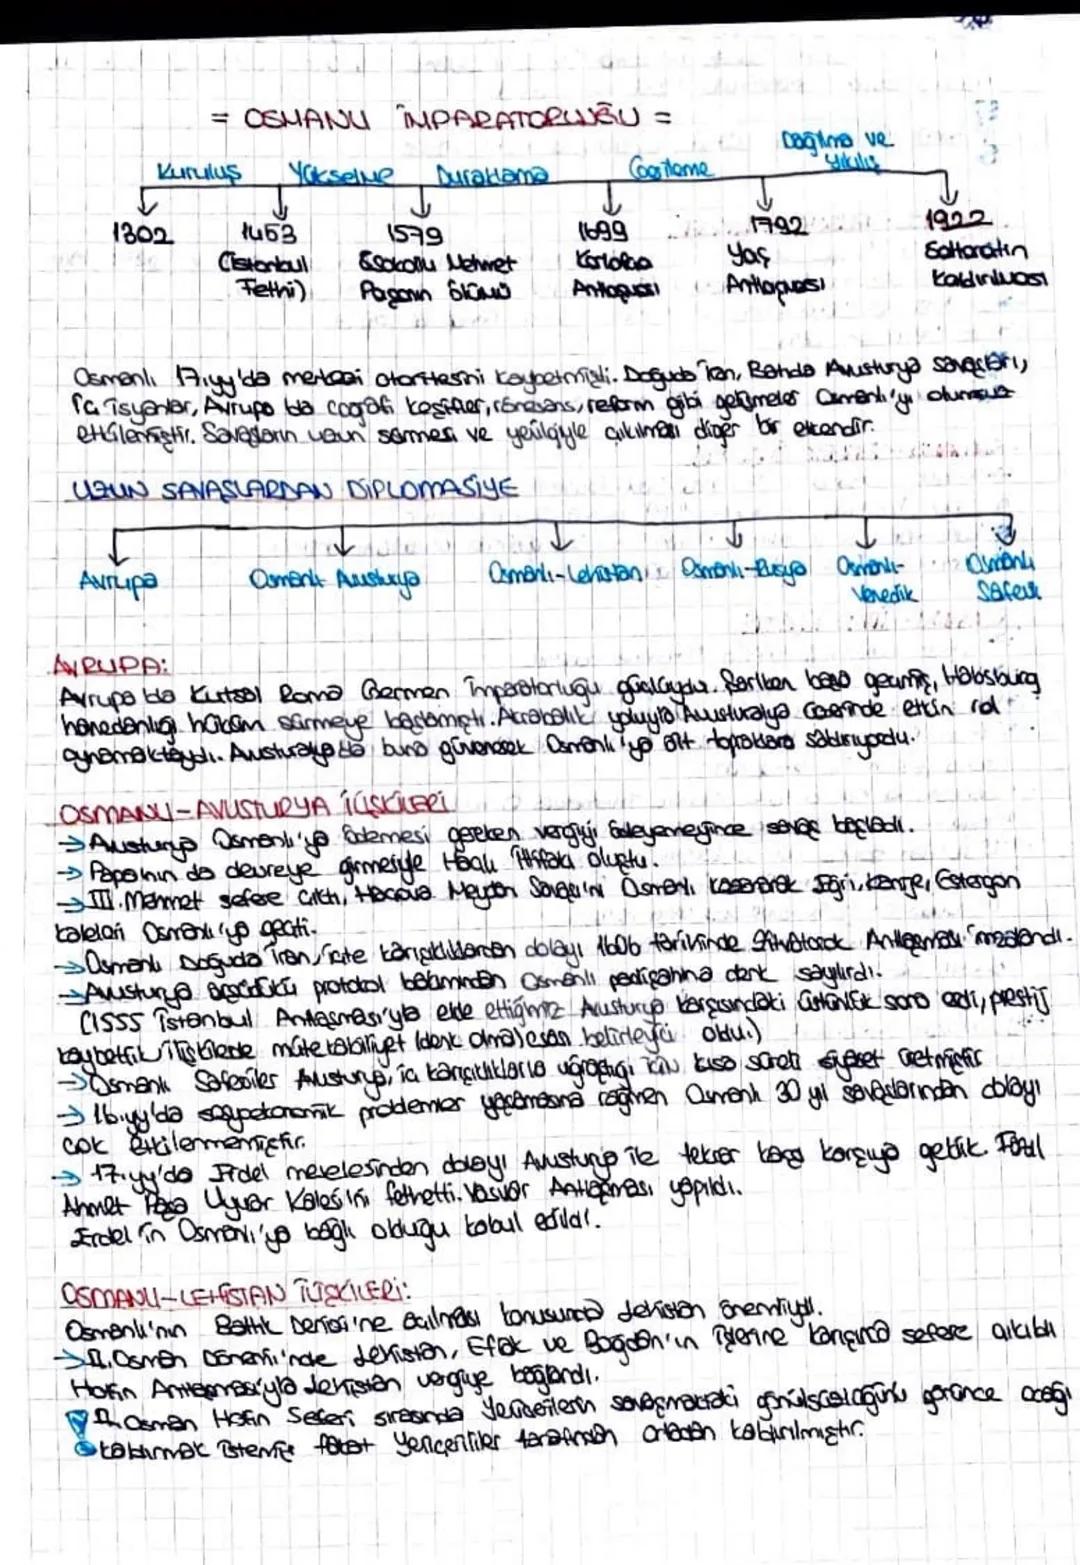 = OSMANLI İMPARATORLUĞU =
Kuruluş Yükselme Duraklama Gerileme Dağılma ve Yıkılış
1302 1453 1579 1699 1792 1922
(İstanbul Sokollu Mehmet Karlofça Yaş Saltanatın
Fethi) Paşanın ölümü Antlaşması Antlaşması kaldırılması
Osmanlı 17.yy'da merkezi otoritesini kaybetmişti. Doğuda İran, Batıda Avusturya savaşları,
iç isyanlar, Avrupa'da coğrafi keşifler, rönesans, reform gibi gelişmeler Osmanlı'yı olumsuz
etkilemiştir. Savaşların uzun sürmesi ve yenilgiyle çıkılması diğer bir etkendir.
UZUN SAVAŞLARDAN DİPLOMASİYE
Avrupa Osmanlı-Avusturya Osmanlı-Lehistan Osmanlı-Rusya Osmanlı- Osmanlı
Venedik Safevi
AVRUPA:
Avrupa'da Kutsal Roma Germen İmparatorluğu güçlüydü. Şarlken başa geçmiş, Habsburg
hanedanlığı hüküm sürmeye başlamıştı. Akrabalık yoluyla Avusturalya üzerinde etkin rol
oynamaktaydı. Avusturalya'da buna güvenerek Osmanlı'ya ait topraklara saldırıyordu.
OSMANLI-AVUSTURYA İLİŞKİLERİ
→ Avusturya Osmanlı'ya ödemesi gereken vergiyi ödeyemeyince savaş başladı.
→ Papa'nın da devreye girmesiyle Haçlı İttifakı oluştu.
→ III. Mehmet sefere çıktı, Haçova Meydan Savaşı'nı Osmanlı kazanarak Eğri, Kanije, Estergon
kaleleri Osmanlı'ya geçti.
→ Osmanlı Doğuda İran, içte karışıklıklardan dolayı 1606 tarihinde Zitvatorok Antlaşması imzalandı.
→ Avusturya protokol bakımından Osmanlı padişahına denk sayılırdı.
(1555 İstanbul Antlaşması'yla elde ettiğimiz Avusturya karşısındaki üstünlük sona erdi, prestij
kaybettik ilişkilerde mütekabiliyet (denk olma) esası belirleyici oldu.)
→ Osmanlı Safeviler Avusturya, iç karışıklıklarla uğraştığı için kısa süreli siyaset üretmiştir
→ 16.yy'da sosyoekonomik problemler yaşamasına rağmen Osmanlı 30 yıl savaşlarından dolayı
çok etkilenmemiştir.
→ 17.yy'da Erdel meselesinden dolayı Avusturya ile tekrar karşı karşıya geldik. Fazıl
Ahmet Paşa Uyvar Kalesi'ni fethetti. Vasvar Antlaşması yapıldı.
Erdel'in Osmanlı'ya bağlı olduğu kabul edildi.
OSMANLI-LEHİSTAN İLİŞKİLERİ:
Osmanlı'nın Baltık Denizi'ne açılması konusunda Lehistan önemliydi.
→ II. Osman Dönemi'nde Lehistan, Eflak ve Boğdan'ın işlerine karışınca sefere çıkıldı
Hotin Antlaşması'yla Lehistan vergiye bağlandı.
II. Osman Hotin Seferi sırasında Yeniçerilerin savaşmadaki gönülsüzlüğünü görünce ocağı
kaldırmak istemiş fakat Yeniçeriler tarafından ortadan kaldırılmıştır.